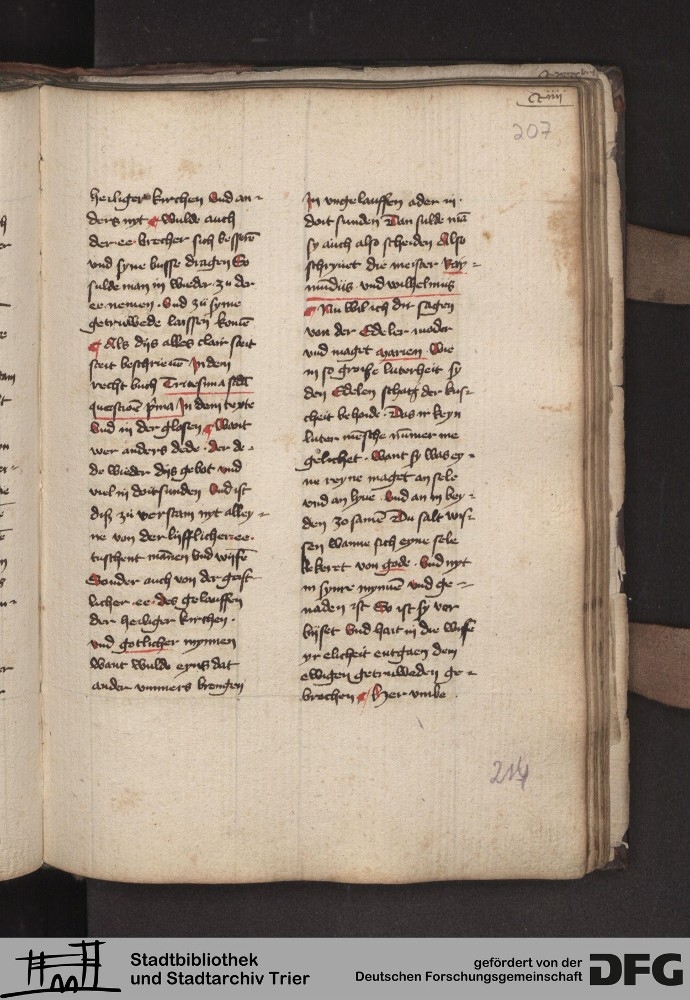 Ciiij
207
heiliger kirchen Vnd an-
ders nyt Wulde auch
der ee brecher sich besserē
vnd syne busse dragen So
sulde man in wieder zu der
ee nemen Vnd zu syme
getruwede laissen komē
Als dijs alles clair steit
steit beschrieuē In dem
recht buch Tricesima scda
questioē p̄ma In dem texte
Vnd in der glosen Want
wer anders dede der de-
de wieder dijs gebot vnd
viel in doitsunden Vnd ist
diß zu verstain nyt alley-
ne von der lijfflicher ee
tuschent mānen Vnd wijfē
Sonder auch von der geist-
licher ee des gelauffen
der heiliger kirchen
vnd gotlicher mynnen
Want Wulde eyns dat
ander vmmers brengen
In vngelauffen oder in
doit sunden Dan sulde mā
sy auch also scheiden Also
schryuet die meister Ray-
mundus vnd wilhelmus
Nu wil ich dir sagen
von der Edeler moder
vnd maget marien Wie
in so groisse luterheit sy
den Edelen schatz der kus-
cheit behonde Das ir keyn
luter mēsche nūmer me
gelichet Want sy was ey-
ne reyne maget an sele
vnd an lyue Vnd an in bey-
den zo samē Du salt wis-
sen wanne sich eyne sele
bekeret von gode Vnd nyt
in synre mynnē vnd ge-
naden ist So ist sy ver
bijset Vnd hait in die wise
yr elicheit entgaen dem
ewigen getruweden ge-
brochen Her vmbe
214
Stadtbibliothek
und Stadtarchiv Trier
gefördert von der
Deutschen Forschungsgemeinschaft
DFG